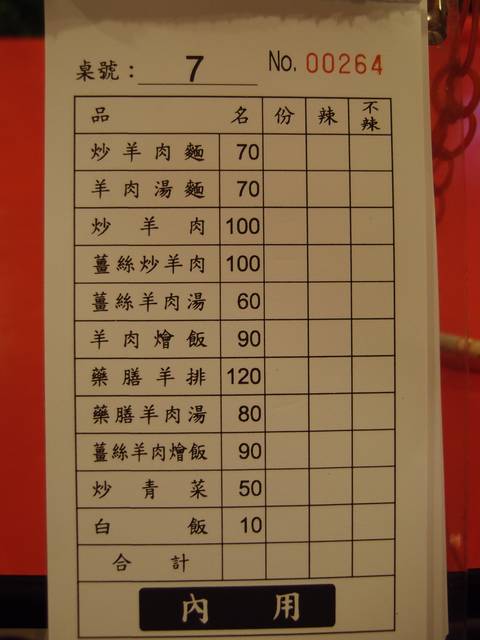 桌號：7 No. 00264
品名 份 辣 不辣
炒羊肉麵 70
羊肉湯麵 70
炒羊肉 100
薑絲炒羊肉 100
薑絲羊肉湯 60
羊肉燴飯 90
藥膳羊排 120
藥膳羊肉湯 80
薑絲羊肉燴飯 90
炒青菜 50
白飯 10
合計
內用